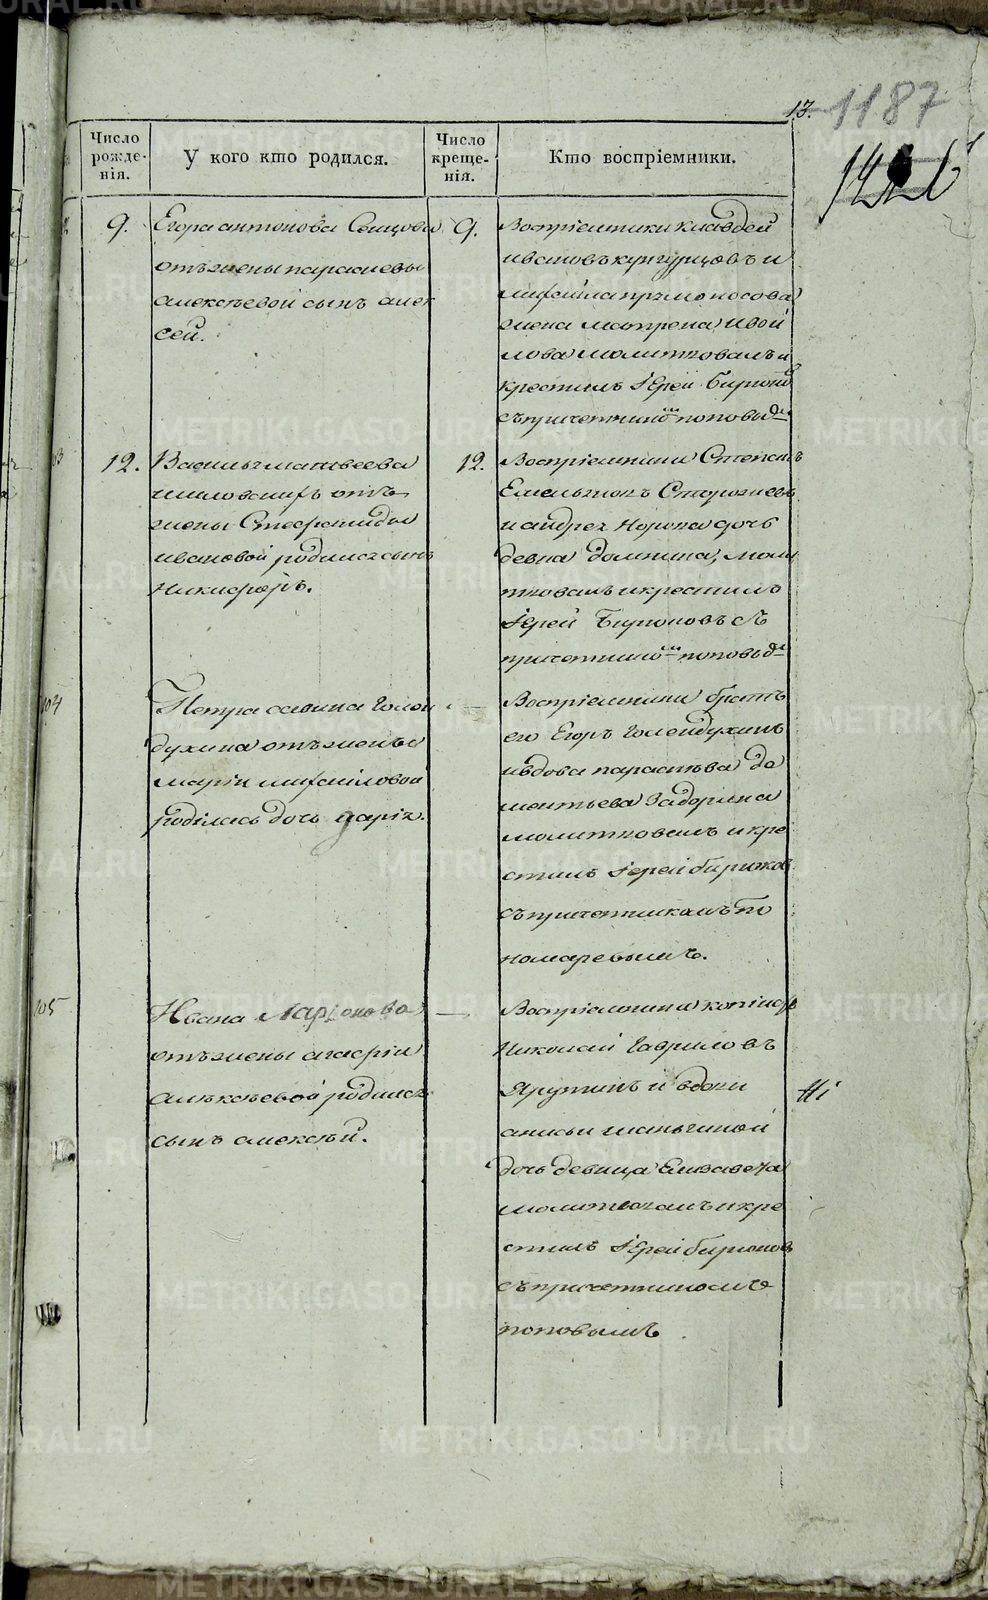 13.
1187
Число рожденія.
У кого кто родился.
Число крещенія.
Кто воспріемники.
9.
Егора антонова
отъ жены парасковьи
алексѣевой сынъ алек
сей.
9.
Воспріемники клавдей
ивановъ кунгурцовъ и
жена матрена
молитвовалъ и
крестилъ Іерей Бирюков
съ причетником поповым
103
12.
Василья матвеева
отъ
жены Стефаниды
ивановой родился сынъ
Никифоръ.
12.
Воспріемники Степанъ
Емельянов
и андрея дочь
девка домнина, моли
твовалъ и крестилъ
Іерей Бирюковъ съ
причетником поповым
104
Петра савина Голен
духина отъ жены
маріи михаиловой
родилась дочь марія.
—
Воспріемники братъ
его Егоръ Голендухинъ
и вдова параскева де
ментьева Задорина
молитвовалъ и кре
стилъ Іерей бирюков
съ причетникомъ по
номаревымъ.
105
Ивана Ларіонова
отъ жены агафіи
алексѣевой родился
сынъ алексѣй.
—
Воспріемники копіистъ
Николай Гавриловъ
Ярутинъ и вдовы
анисьи
дочь девица Елизавета
молитвовалъ и кре
стилъ Іерей бирюков
съ причетникомъ
поповымъ
METRIKI.GASO-URAL.RU